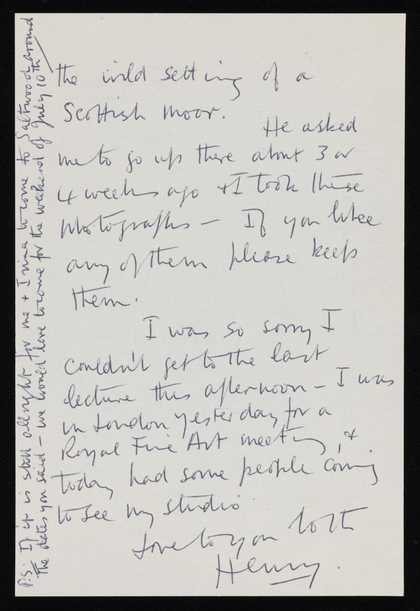 the wild setting of a
Scottish moor.
He asked
me to go up there about 3 or
4 weeks ago & I took these
photographs — If you like
any of them please keep
them.
I was so sorry I
couldn't get to the last
lecture this afternoon — I was
in London yesterday for a
Royal Fine Art meeting, &
today had some people coming
to see my studio
Love to you both
Henry.
P.S. If it is still allright for me & Irina to come to Saltwood around
the dates you said — we would love to come for the weekend of July 10th